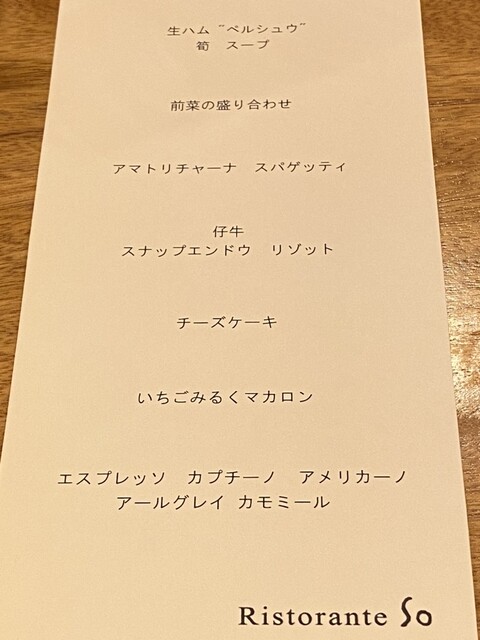 生ハム "ペルシュウ"
筍　スープ
前菜の盛り合わせ
アマトリチャーナ　スパゲッティ
仔牛
スナップエンドウ　リゾット
チーズケーキ
いちごみるくマカロン
エスプレッソ　カプチーノ　アメリカーノ
アールグレイ カモミール
Ristorante So